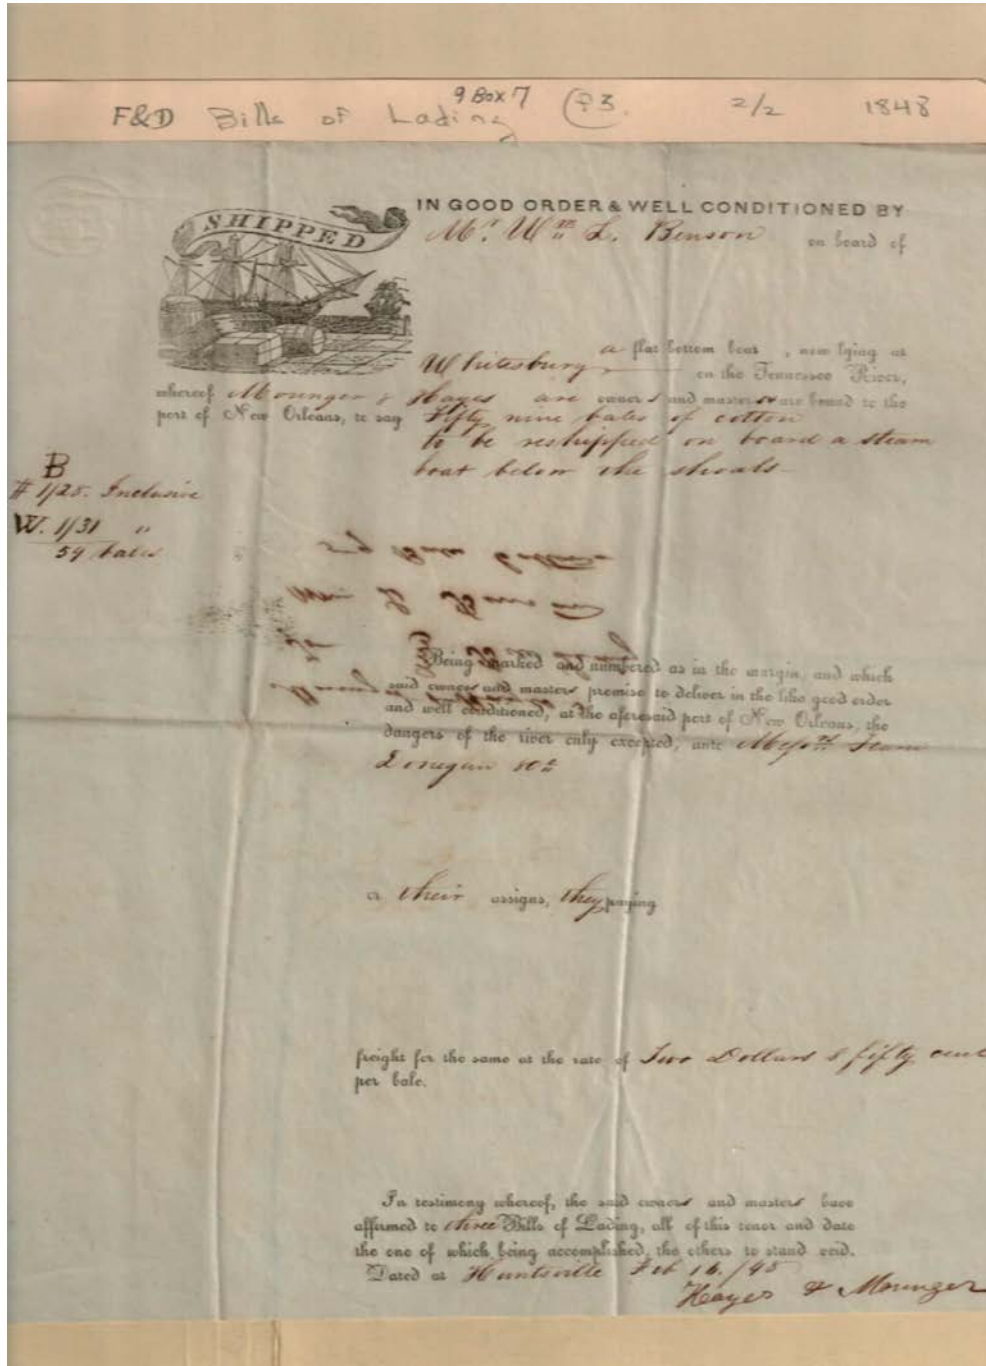 9 Box 7
F&D Bills of Lading 2/2 1848
SHIPPED
IN GOOD ORDER & WELL CONDITIONED BY
Mr. Wm L. Benson on board of
a flat bottom boat, now lying at
Whitesburg, on the Tennessee River,
whereof Mounger & Hayes are owners and masters are bound to the
port of New Orleans, to say Fifty nine bales of cotton
to be reshipped on board a steam
boat below the shoals
B
# 1/28. Inclusive
W. 1/31 "
59 bales
Being marked and numbered as in the margin, and which
said owners and masters promise to deliver in the like good order
and well conditioned, at the aforesaid port of New Orleans, the
dangers of the river only excepted, unto Messrs
Donegan
or their assigns, they paying
freight for the same at the rate of Two Dollars & fifty cent
per bale.
In testimony whereof, the said owners and masters have
affirmed to three Bills of Lading, all of this tenor and date
the one of which being accomplished, the others to stand void.
Dated at Huntsville Feb 16.
Hayes & Mounger